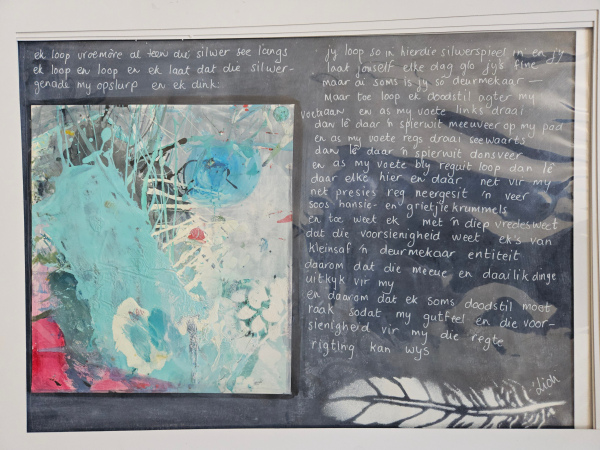 ek loop vroemôre al teen die silwer see langs
ek loop en loop en ek laat dat die silwer-
genade my opslurp en ek dink:
jy loop so in hierdie silwerspieël in en jy
laat jouself elke dag glo jy's fine
maar ai soms is jy só deurmekaar —
Maar toe loop ek doodstil agter my
voete aan en as my voete links draai
dan lê daar 'n spierwit meeuveer op my pad
en as my voete regs draai seewaarts
dan lê daar 'n spierwit donsveer
en as my voete bly reguit loop dan lê
daar elke hier en daar net vir my
net presies reg neergesit 'n veer
soos hansie- en grietjie krummels
en toe weet ek met 'n diep vredesweet
dat die voorsienigheid weet ek's van
kleinsaf 'n deurmekaar entiteit
daarom dat die meeue en daai lik dinge
uitkyk vir my
en daarom dat ek soms doodstil moet
raak sodat my gutfeel en die voor-
sienigheid vir my die regte
rigting kan wys